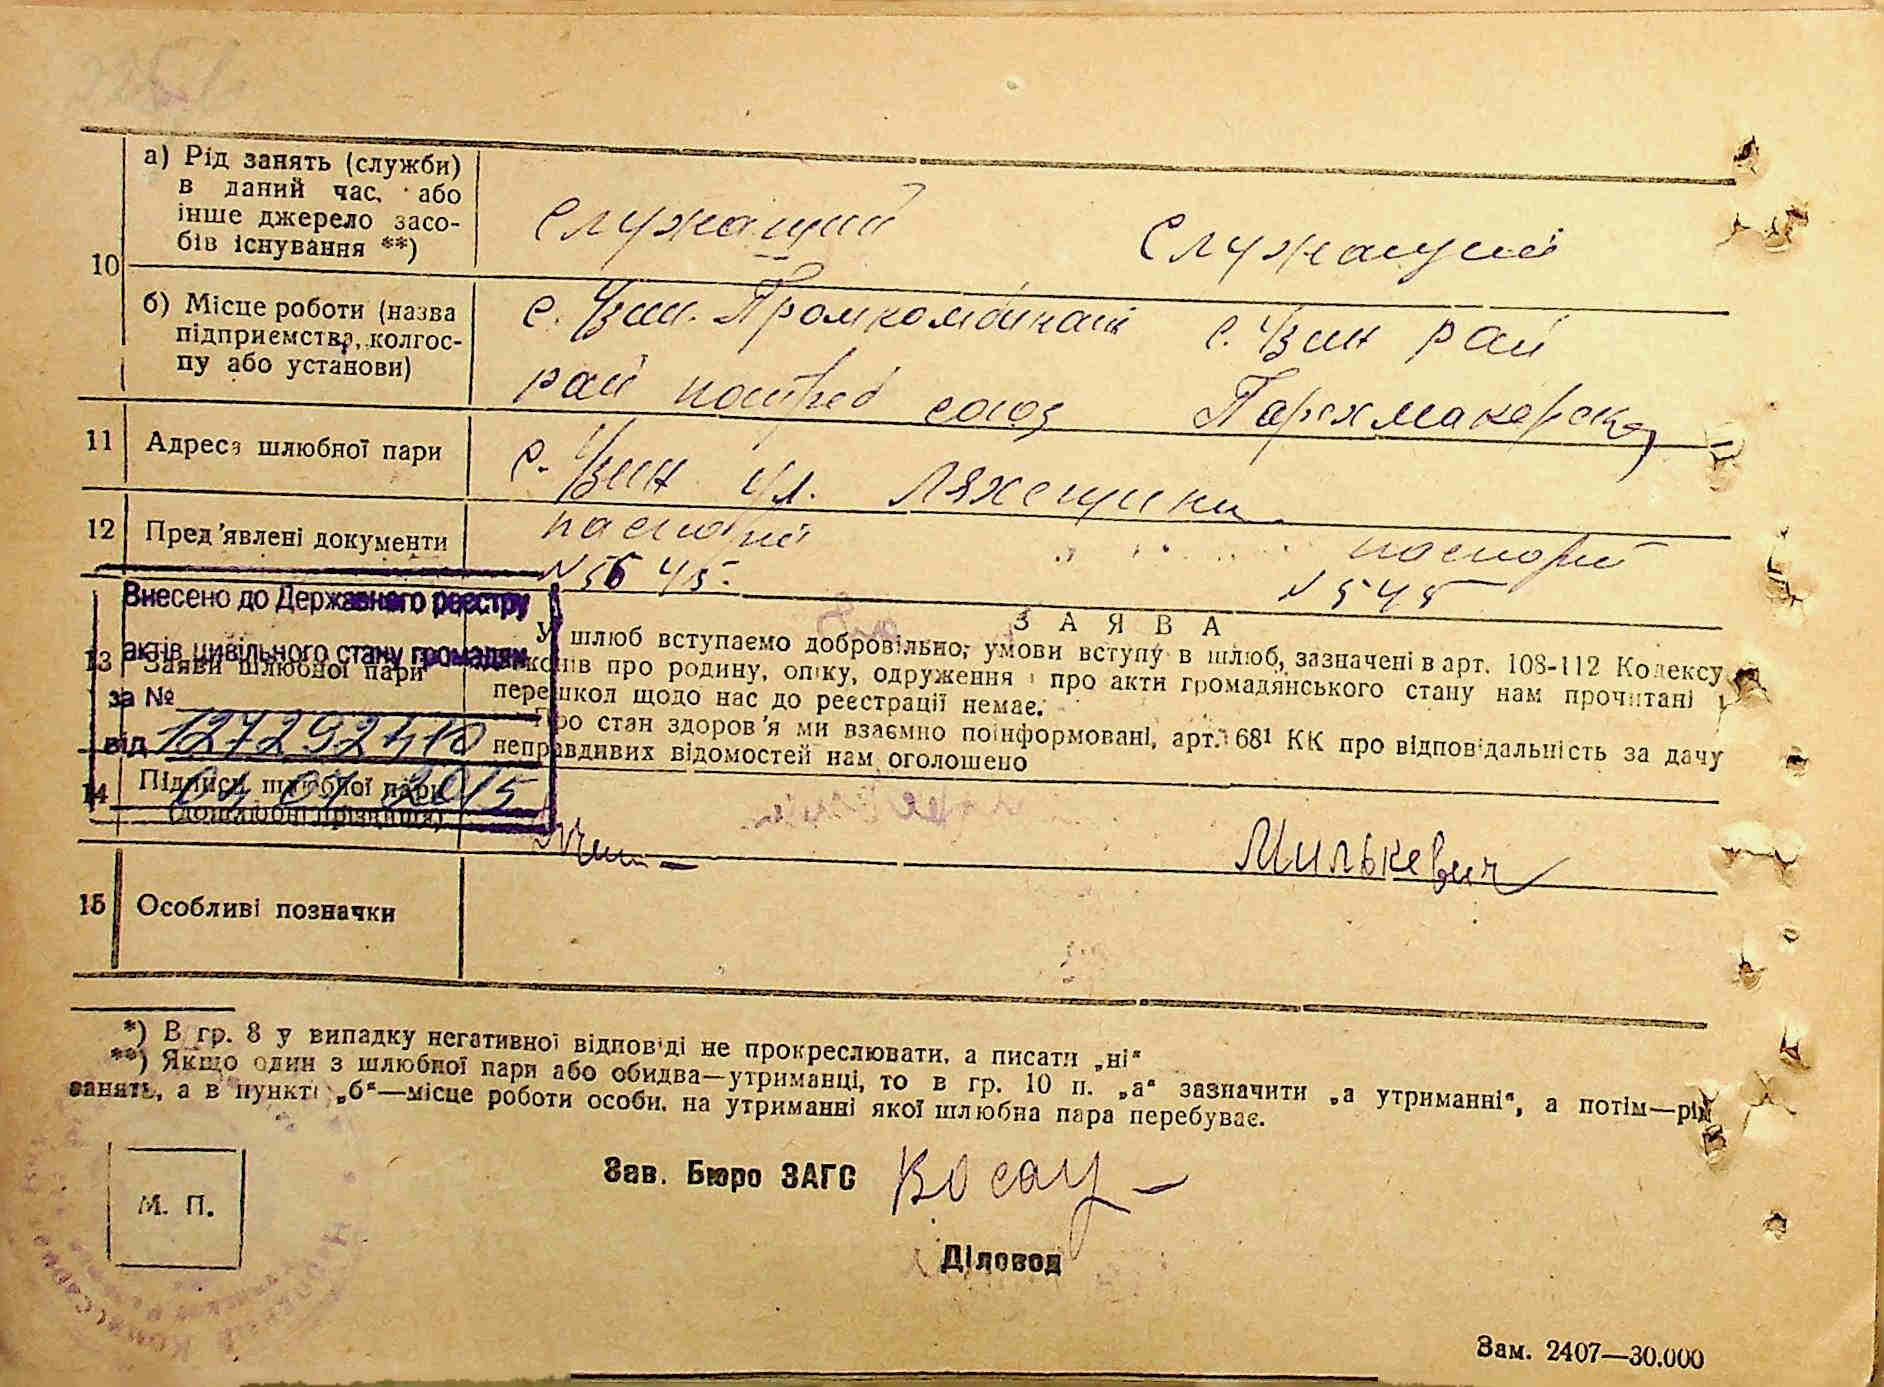 10
а) Рід занять (служби)
в даний час, або
інше джерело засо-
бів існування **)
служащий
служащий
б) Місце роботи (назва
підприємства, колгос-
пу або установи)
с. Узин. Промкомбинат
рай потреб союз
с. Узин рай
Парехмакерская
11
Адреса шлюбної пари
с. Узин ул. Ляхещина
12
Пред'явлені документи
паспорт
№ 5645.
паспорт
№ 545
Внесено до Державного реєстру
актів цивільного стану громадян
за №
127292410
від
2015
13
Заяви шлюбної пари
ЗАЯВА
У шлюб вступаємо добровільно, умови вступу в шлюб, зазначені в арт. 108-112 Кодексу
законів про родину, опіку, одруження і про акти громадянського стану нам прочитані і
перешкод щодо нас до реєстрації немає.
Про стан здоров'я ми взаємно поінформовані, арт. 68¹ КК про відповідальність за дачу
неправдивих відомостей нам оголошено
14
Підписи шлюбної пари
(дошлюбні прізвища)
Милькевич
15
Особливі позначки
*) В гр. 8 у випадку негативної відповіді не прокреслювати, а писати „ні"
**) Якщо один з шлюбної пари або обидва—утриманці, то в гр. 10 п. „а" зазначити „а утриманні", а потім—рід
занять, а в пункті „б"—місце роботи особи, на утриманні якої шлюбна пара перебуває.
М. П.
Зав. Бюро ЗАГС
Діловод
Зам. 2407—30.000